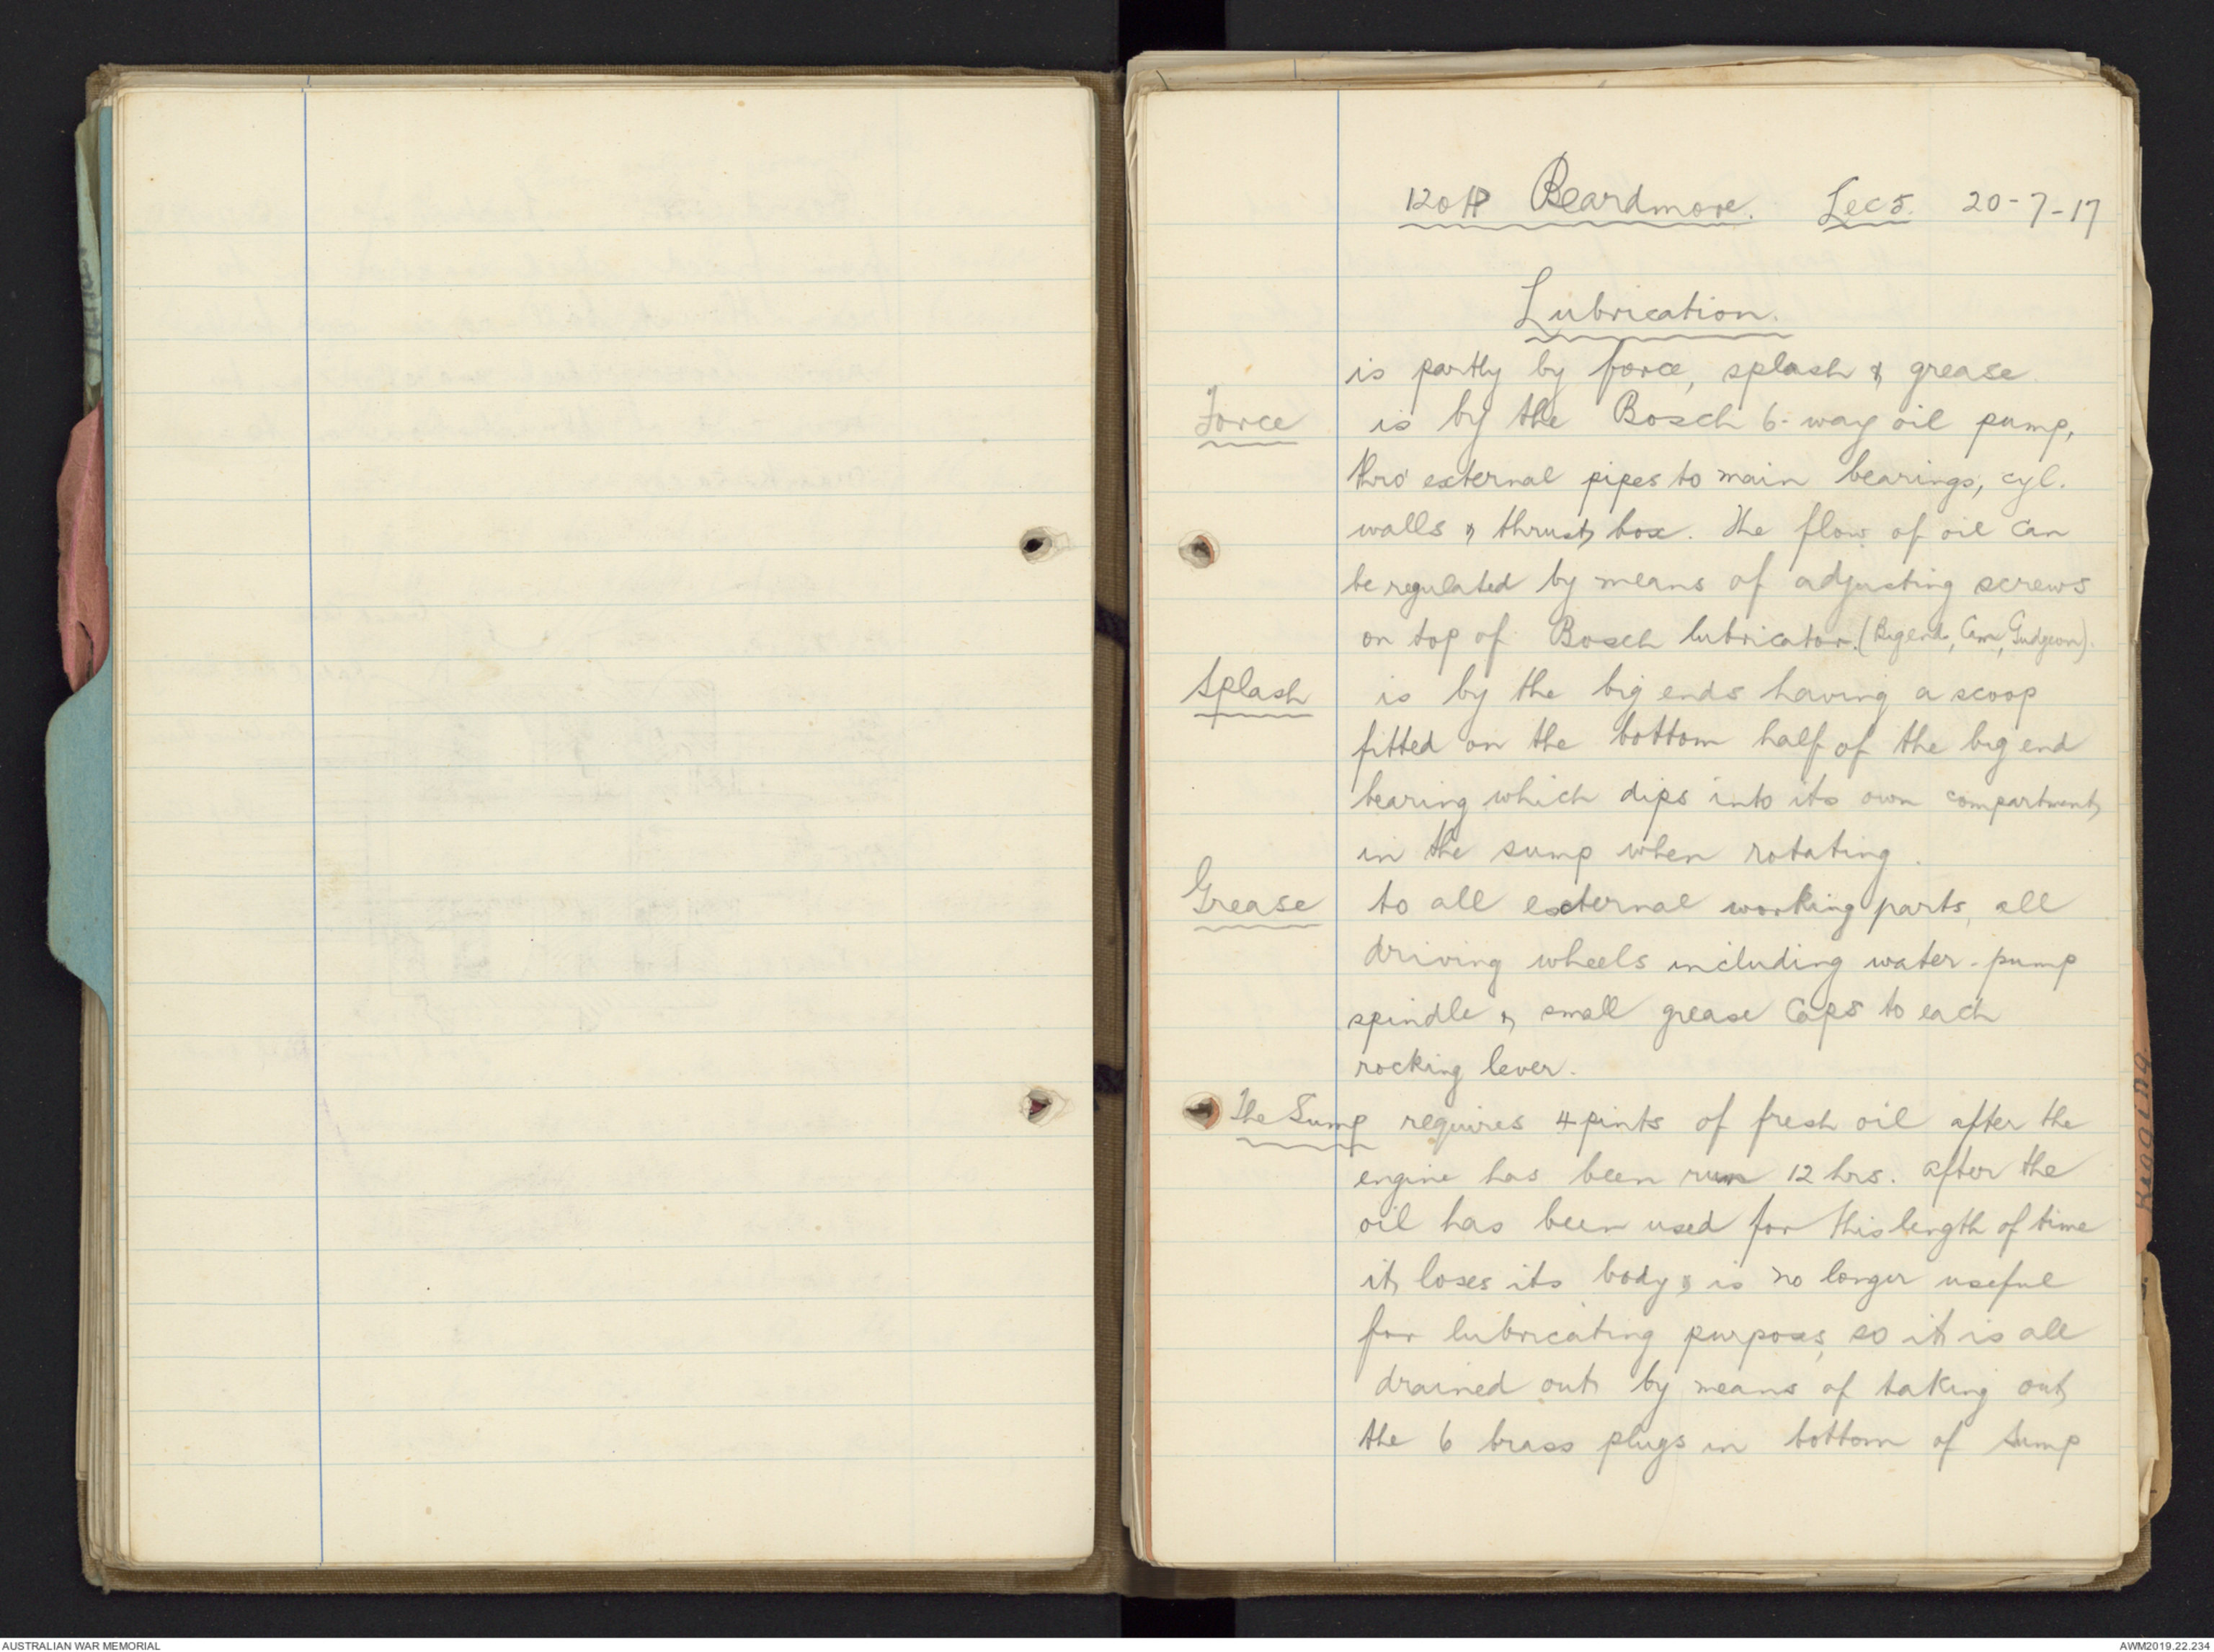 120 HP Beardmore. Lec 5. 20-7-17
Lubrication.
is partly by force, splash & grease
Force is by the Bosch 6-way oil pump,
thro' external pipes to main bearings, cyl.
walls & thrust box. The flow of oil can
be regulated by means of adjusting screws
on top of Bosch lubricator. (Bigend, Cam, Gudgeon).
Splash is by the big ends having a scoop
fitted on the bottom half of the big end
bearing which dips into its own compartment
in the sump when rotating.
Grease to all external working parts, all
driving wheels including water-pump
spindle & small grease caps to each
rocking lever.
The Sump requires 4 pints of fresh oil after the
engine has been run 12 hrs. after the
oil has been used for this length of time
it loses its body & is no longer useful
for lubricating purposes, so it is all
drained out by means of taking out
the 6 brass plugs in bottom of sump
Rigging.
AUSTRALIAN WAR MEMORIAL
AWM2019.22.234